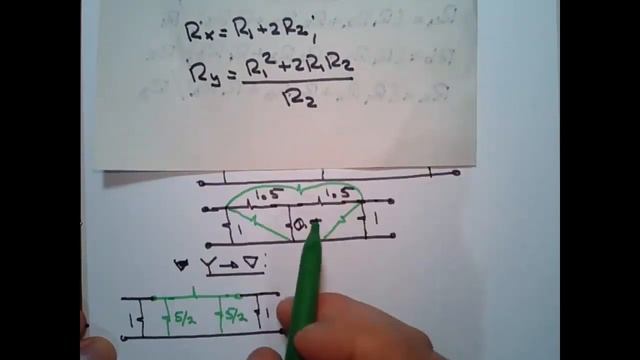 Rx = R1 + 2R2;
Ry = R1² + 2R1R2
R2
1.5 1.5
1 1
Y → ∇:
1 5/2 5/2 1